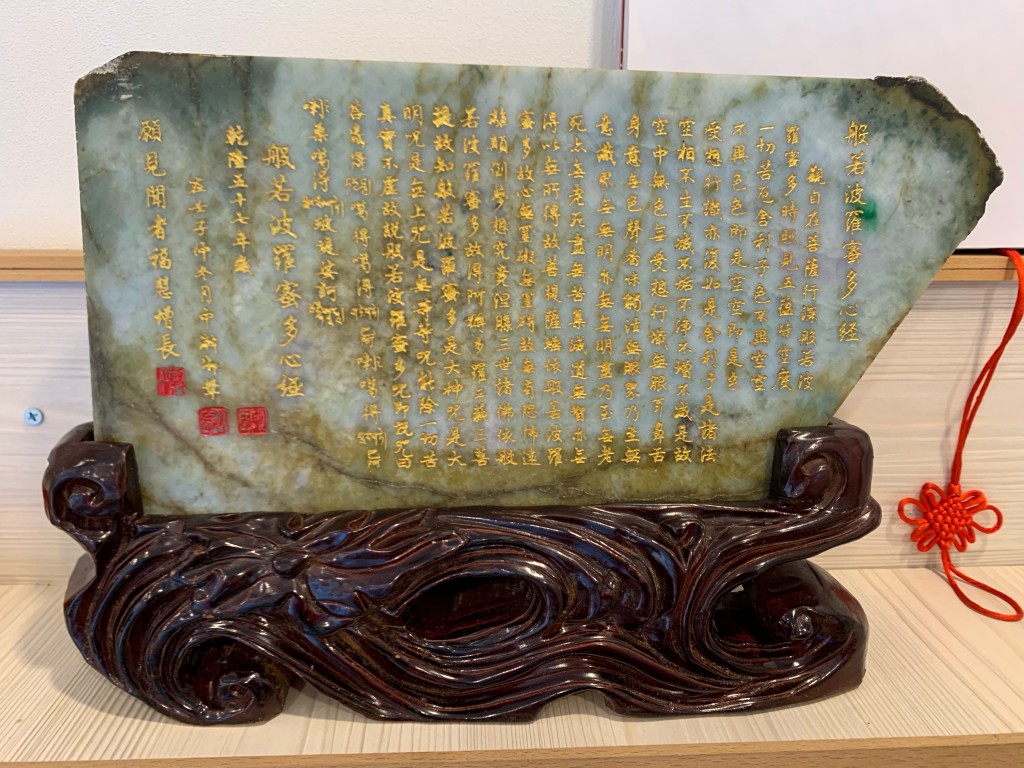 般若波羅蜜多心經
觀自在菩薩行深般若波
羅蜜多時照見五蘊皆空度
一切苦厄舍利子色不異空空
不異色色即是空空即是色
受想行識亦復如是舍利子是諸法
空相不生不滅不垢不淨不增不減是故
空中無色無受想行識無眼耳鼻舌
身意無色聲香味觸法無眼界乃至無
意識界無無明亦無無明盡乃至無老
死亦無老死盡無苦集滅道無智亦無
得以無所得故菩提薩埵依般若波羅
蜜多故心無罣礙無罣礙故無有恐怖遠
離顛倒夢想究竟涅槃三世諸佛依般
若波羅蜜多故得阿耨多羅三藐三菩
提故知般若波羅蜜多是大神咒是大
明咒是無上咒是無等等咒能除一切苦
真實不虛故說般若波羅蜜多咒即說咒曰
噶得噶得
般若波羅蜜多心經
乾隆五十七年歲
在壬子仲冬月中澣御筆
願見聞者福慧增長